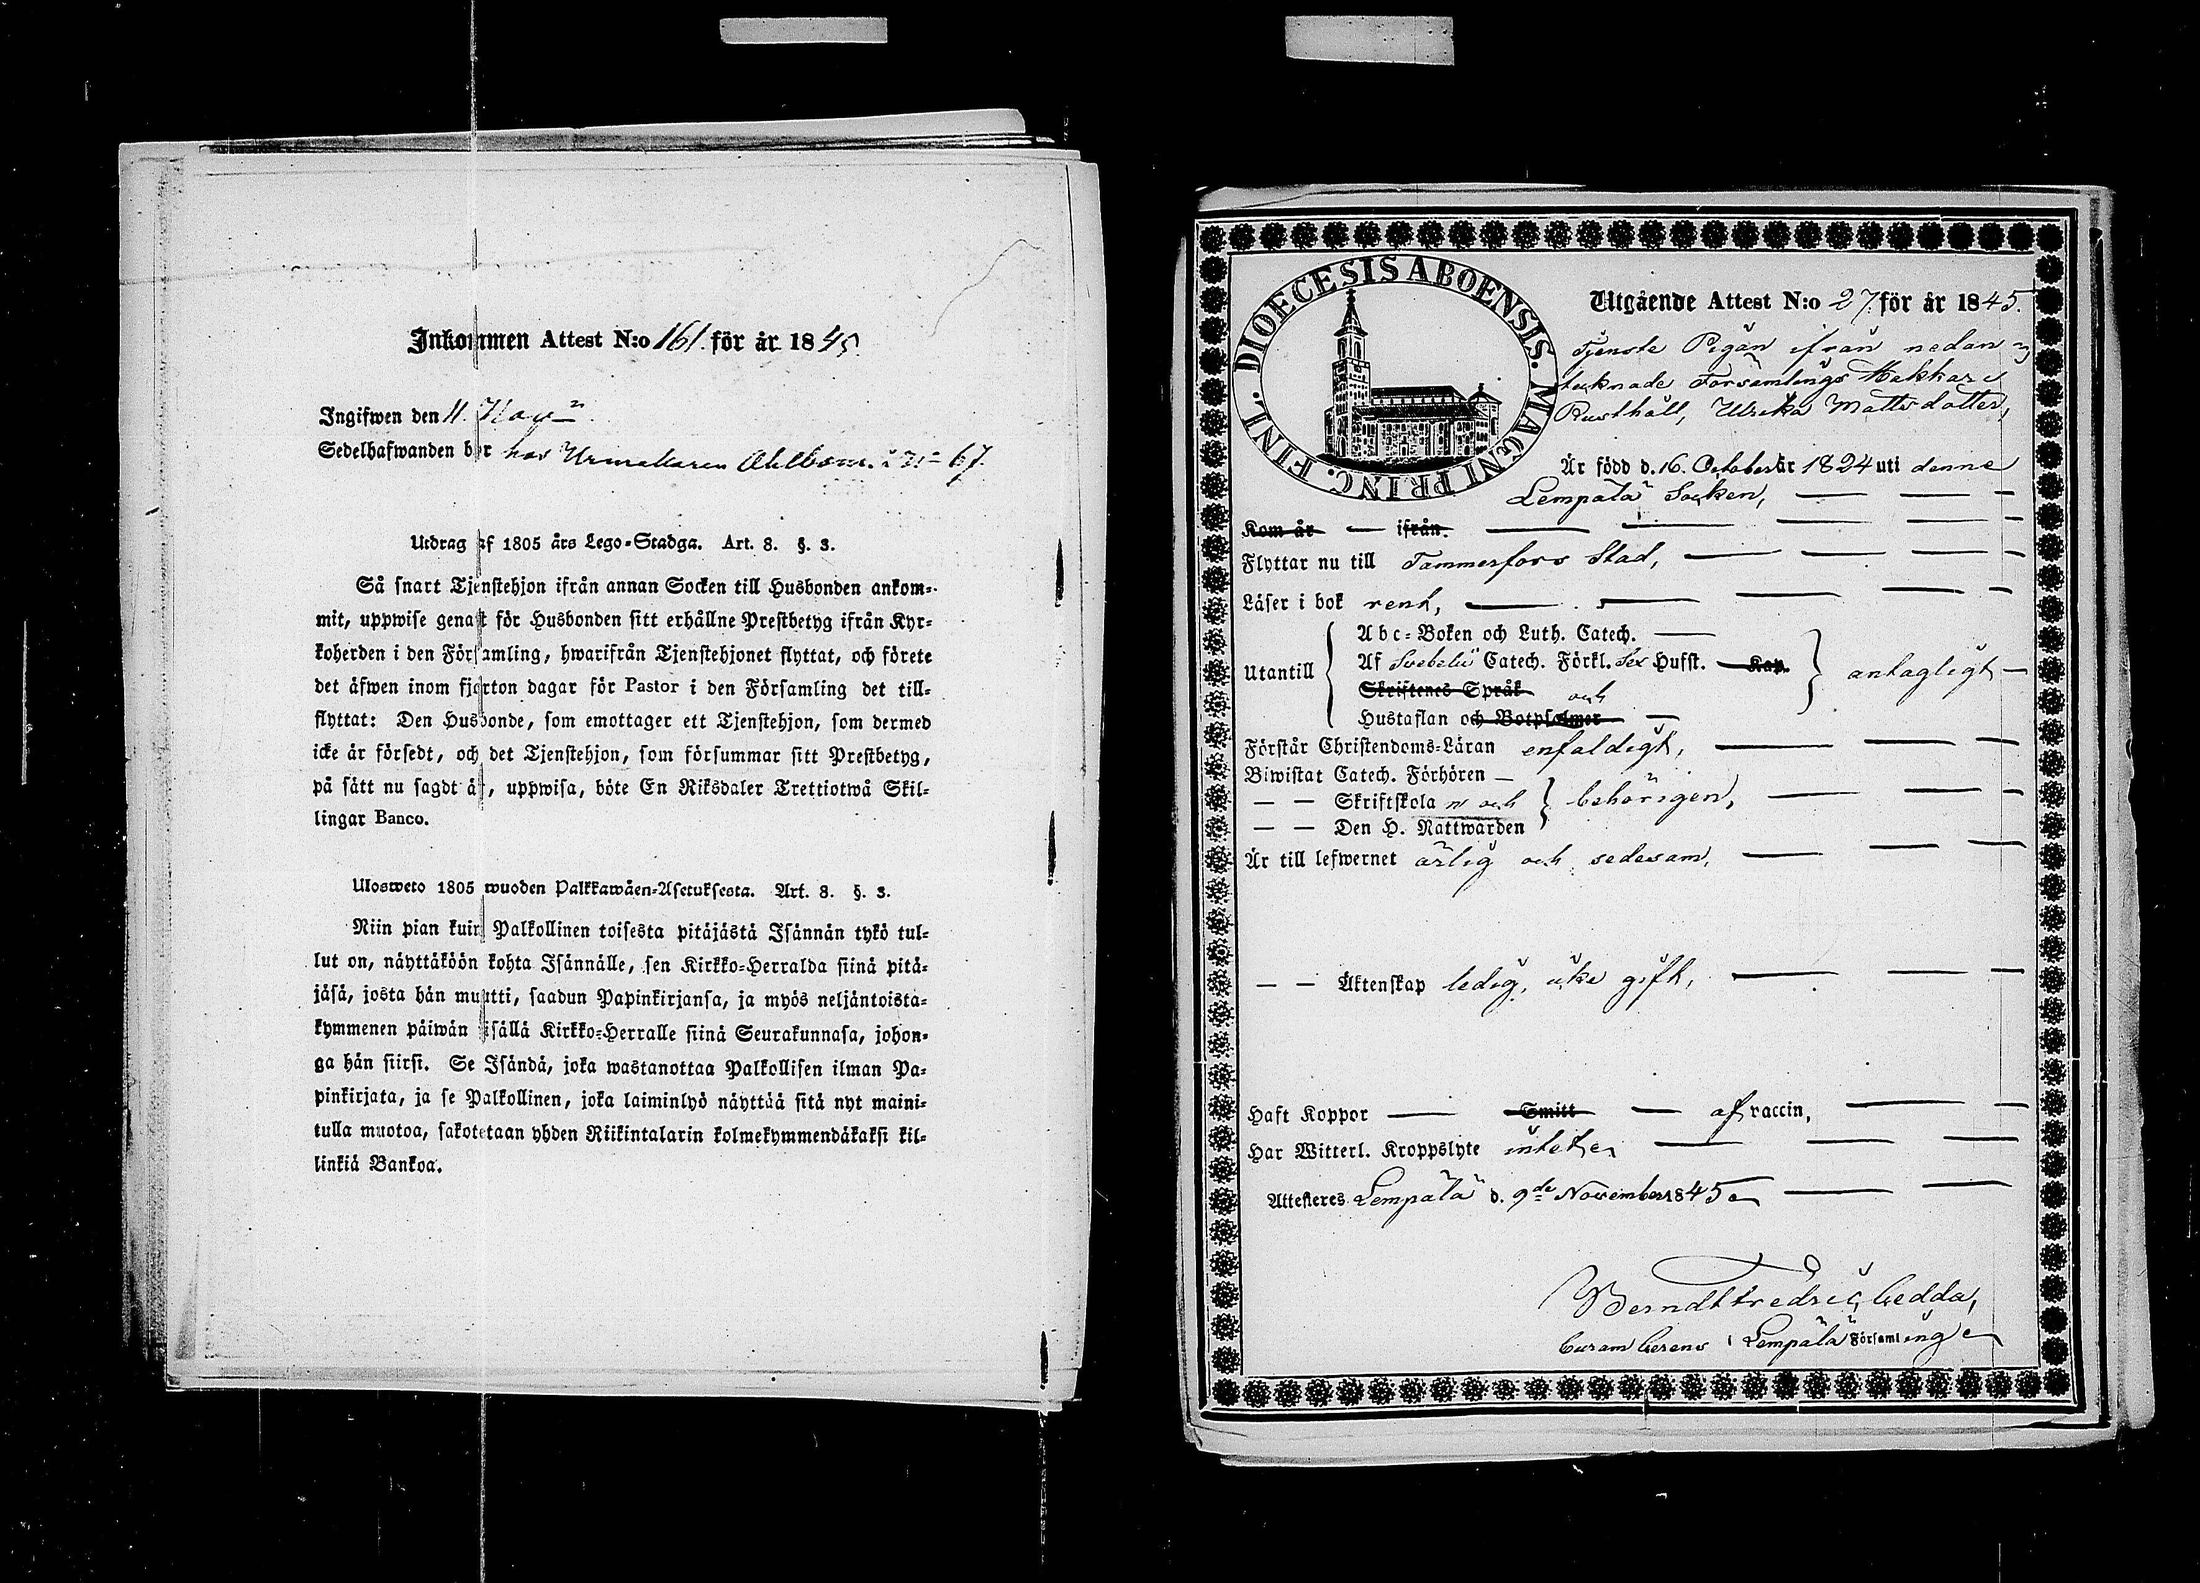 Inkommen Attest N:o 161. för år 1845.
Ingifwen den 11. Novr
Sedelhafwanden bor hos Urmakaren Ahlbom. i No 67.
Utdrag af 1805 års Lego-Stadga. Art. 8. §. 3.
Så snart Tjenstehjon ifrån annan Socken till Husbonden ankom-
mit, uppwise genast för Husbonden sitt erhållne Prestbetyg ifrån Kyr-
koherden i den Församling, hwarifrån Tjenstehjonet flyttat, och förete
det äfwen inom fjorton dagar för Pastor i den Församling det till-
flyttat: Den Husbonde, som emottager ett Tjenstehjon, som dermed
icke är försedt, och det Tjenstehjon, som försummar sitt Prestbetyg,
på sätt nu sagdt är, uppwisa, böte En Riksdaler Trettiotwå Skil-
lingar Banco.
Ulosweto 1805 wuoden Palkkawäen-Asetuksesta. Art. 8. §. 3.
Niin pian kuin Palkollinen toisesta pitäjästä Isännän tykö tul-
lut on, näyttäköön kohta Isännälle, sen Kirkko-Herralda siinä pitä-
jäsä, josta hän muutti, saadun Papinkirjansa, ja myös neljäntoista-
kymmenen päiwän sisällä Kirkko-Herralle siinä Seurakunnasa, johon-
ga hän siirsi. Se Isändä, joka wastanottaa Palkollisen ilman Pa-
pinkirjata, ja se Palkollinen, joka laiminlyö näyttää sitä nyt maini-
tulla muotoa, sakotetaan yhden Riikintalarin kolmekymmendäkaksi kil-
linkiä Bankoa.
DIOECESIS ABOENSIS. MAGNI PRINC. FINL.
Utgående Attest N:o 27. för år 1845.
Tjenste Pigan ifrån nedan
tecknade Församlings Hakkari
Rusthåll, Ulrika Mattsdotter,
Är född d. 16. October år 1824 uti denne
Lempälä Socken,
Kom år — ifrån.
Flyttar nu till Tammerfors Stad,
Läser i bok rent,
Abc-Boken och Luth. Catech.
Utantill Af Svebelii Catech. Förkl. Sex Hufst. Kap. antagligt
Skriftenes Språk och
Hustaflan och Botpsalmer
Förstår Christendoms-Läran enfaldigt,
Biwistat Catech. Förhören
— — Skriftskolan och behörigen,
— — Den H. Nattwarden
Är till lefwernet ärlig och sedesam,
— — Äktenskap ledig, icke gift,
Haft Koppor — Smitt — af vaccin,
Har Witterl. Kroppslyte intet
Attesteres Lempälä d. 9de November 1845
Berndt Fredric Gedda,
Curam Gerens i Lempälä Församling